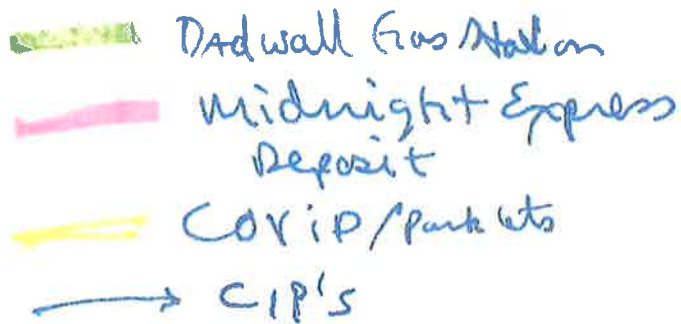 Dadwall Gas Station
Midnight Express
Deposit
COViD/Parklets
CIP's